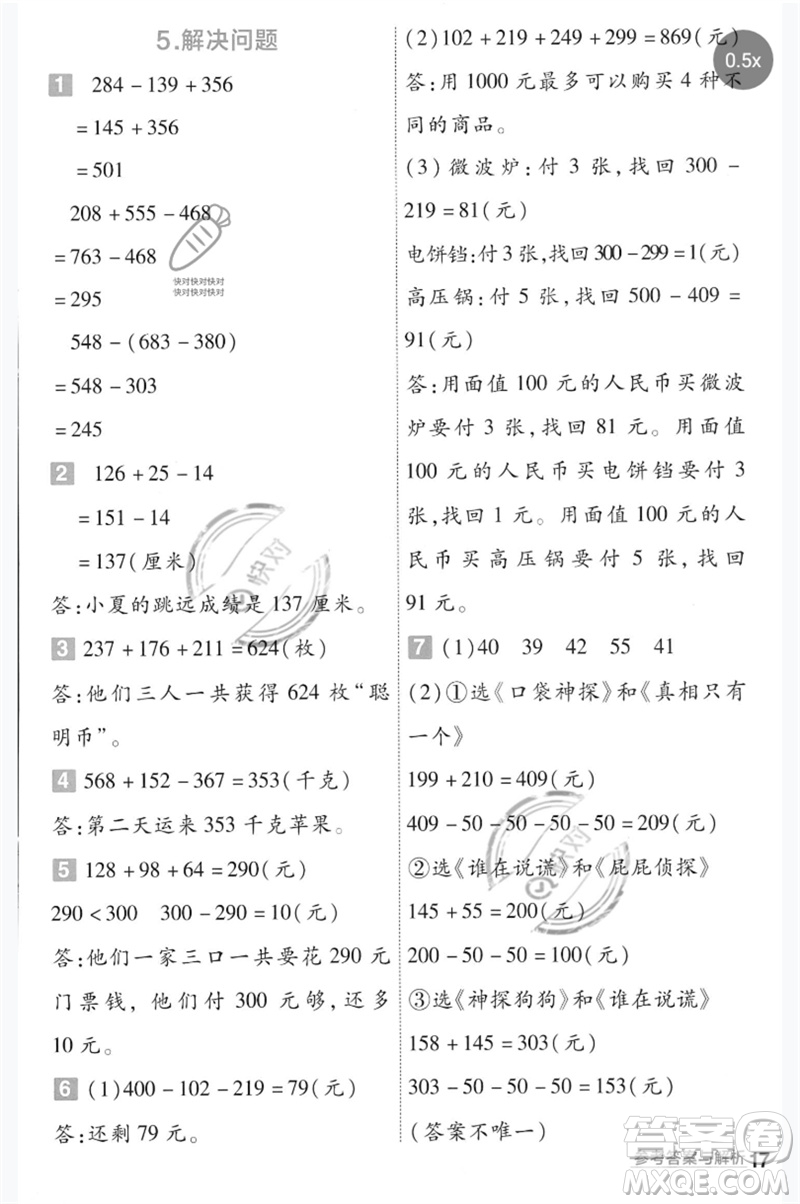 5.解决问题
1 284－139＋356
＝145＋356
＝501
208＋555－468
＝763－468
＝295
548－(683－380)
＝548－303
＝245
2 126＋25－14
＝151－14
＝137(厘米)
答:小夏的跳远成绩是 137 厘米。
3 237＋176＋211＝624(枚)
答:他们三人一共获得 624 枚“聪
明币”。
4 568＋152－367＝353(千克)
答:第二天运来 353 千克苹果。
5 128＋98＋64＝290(元)
290＜300 300－290＝10(元)
答:他们一家三口一共要花 290 元
门票钱, 他们付 300 元够,还多
10 元。
6 (1)400－102－219＝79(元)
答:还剩 79 元。
(2)102＋219＋249＋299＝869(元)
答:用 1000 元最多可以购买 4 种不
同的商品。
(3) 微波炉:付 3 张,找回 300－
219＝81(元)
电饼铛:付 3 张,找回 300－299＝1(元)
高压锅:付 5 张,找回 500－409＝
91(元)
答:用面值 100 元的人民币买微波
炉要付 3 张,找回 81 元。用面值
100 元的人民币买电饼铛要付 3
张,找回 1 元。用面值 100 元的人
民币买高压锅要付 5 张,找回
91 元。
7 (1)40 39 42 55 41
(2)①选《口袋神探》和《真相只有
一个》
199＋210＝409(元)
409－50－50－50－50＝209(元)
②选《谁在说谎》和《屁屁侦探》
145＋55＝200(元)
200－50－50＝100(元)
③选《神探狗狗》和《谁在说谎》
158＋145＝303(元)
303－50－50－50＝153(元)
(答案不唯一)
参考答案与解析 17
0.5x
快对快对快对
快对快对快对
快对
快对
答案圈
MXQE.COM